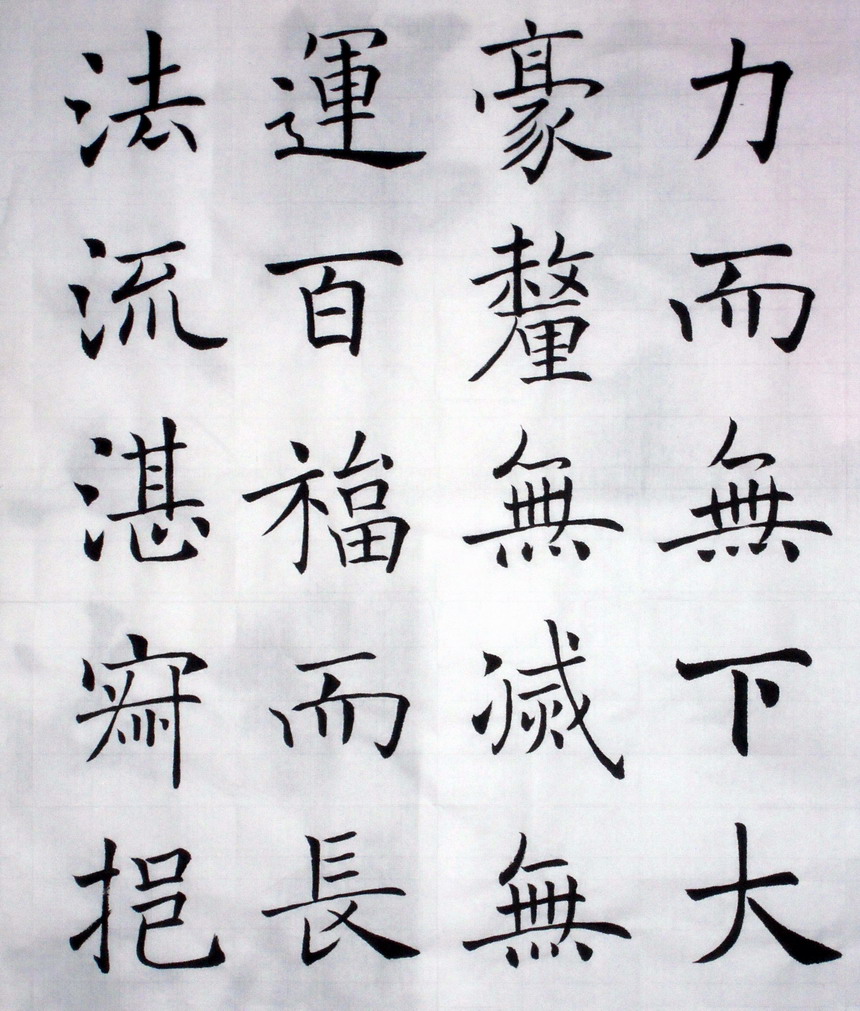 力而無下大
豪釐無滅無
運百福而長
法流湛寂挹